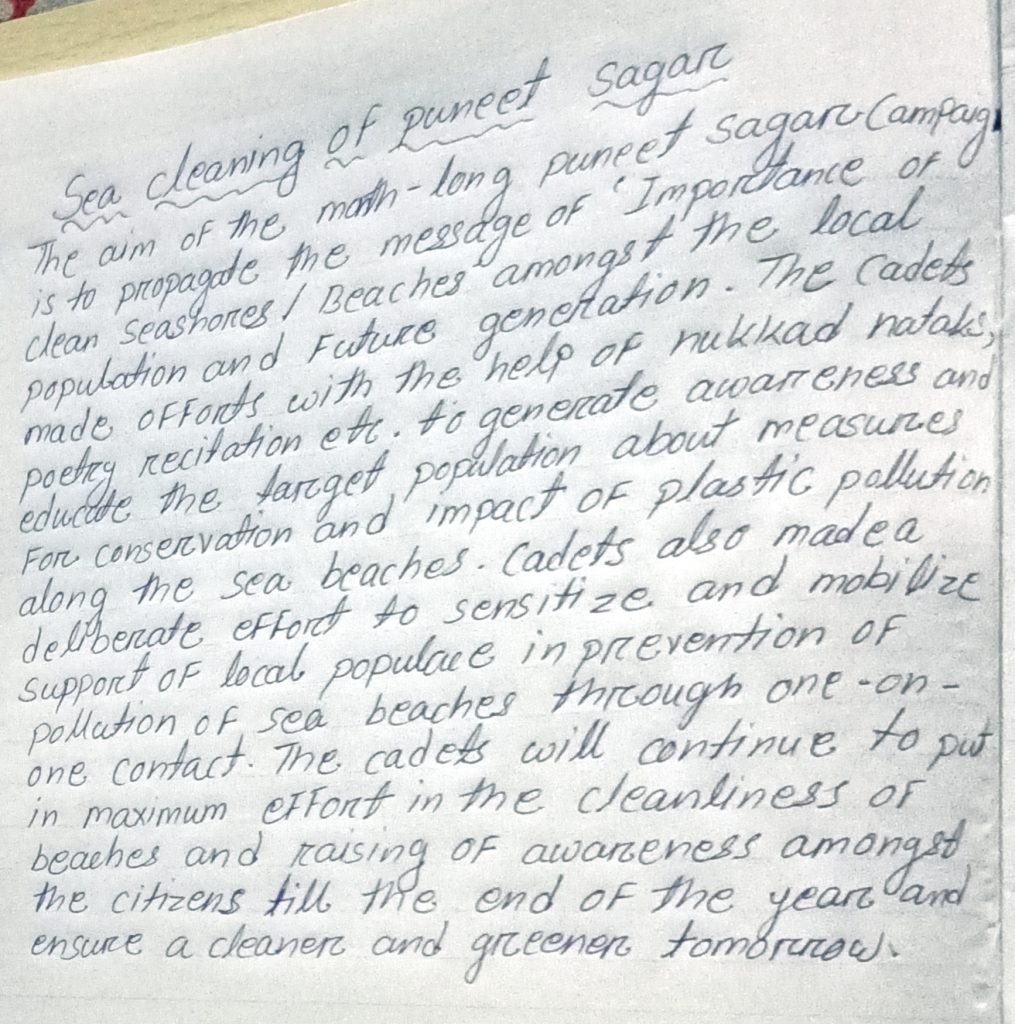 Sea cleaning of puneet Sagar
The aim of the month-long puneet sagar Campaig
is to propagate the message of 'Importance of
clean seashores / Beaches amongst the local
population and Future generation. The Cadets
made offorts with the help of nukkad nataks,
poetry recitation etc. to generate awareness and
educate the target population about measures
For conservation and impact of plastic pollution
along the sea beaches. Cadets also made a
deliberate effort to sensitize and mobilize
support of local populace in prevention of
pollution of sea beaches through one-on-
one contact. The cadets will continue to put
in maximum effort in the cleanliness of
beaches and raising of awareness amongst
the citizens till the end of the year and
ensure a cleaner and greener tomorrow.